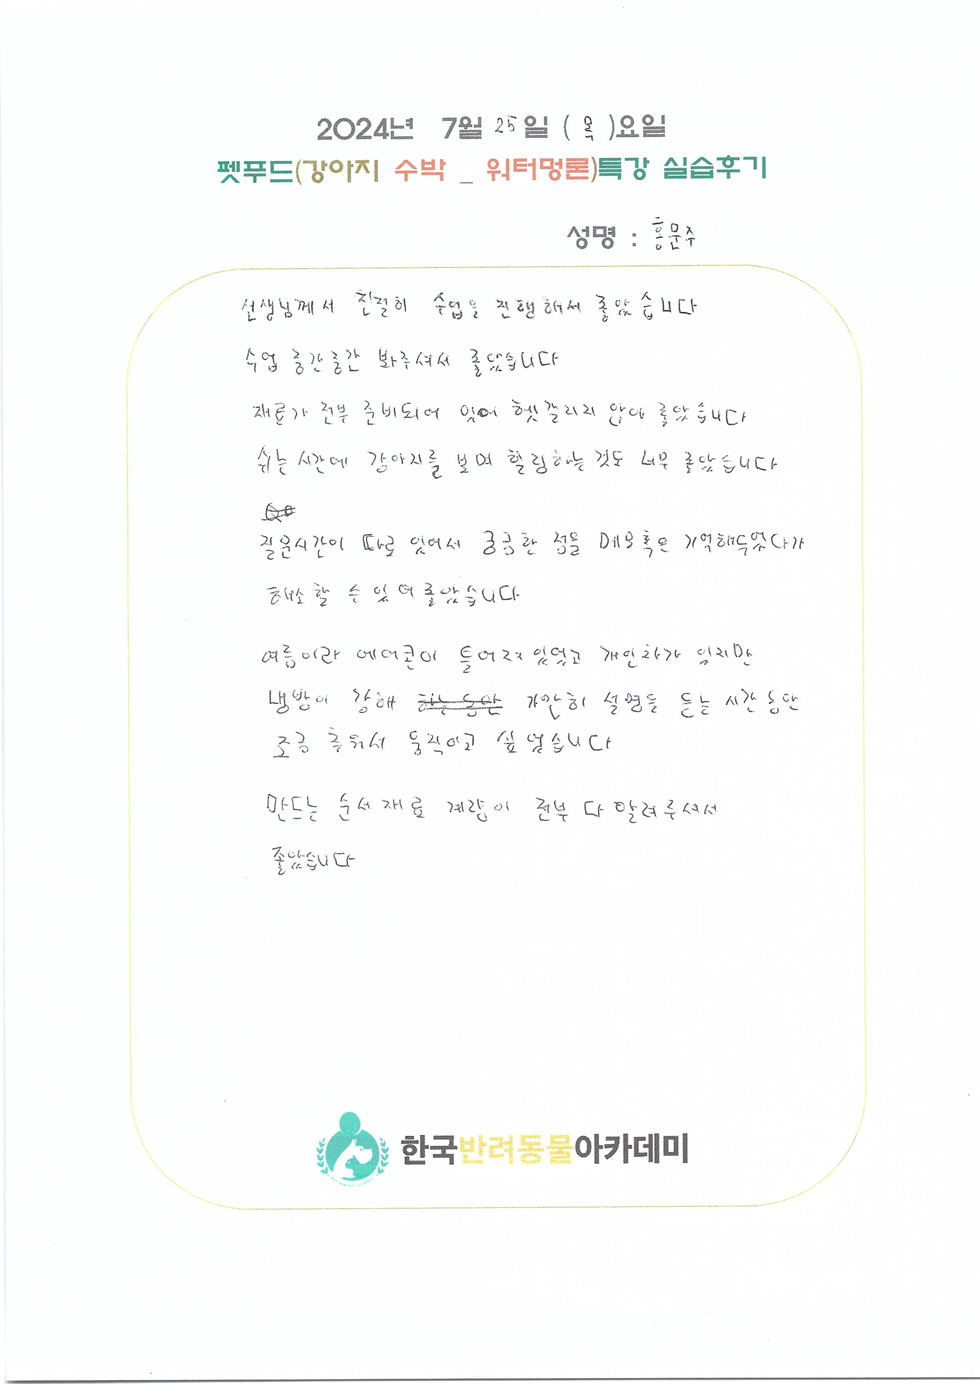 2024년 7월 25일 ( 목 )요일
펫푸드(강아지 수박 _ 워터멍론)특강 실습후기
성명 : 홍문주
선생님께서 친절히 수업을 진행해서 좋았습니다
수업 중간중간 봐주셔서 좋았습니다
재료가 전부 준비되어 있어 헷갈리지 않아 좋았습니다
쉬는시간에 강아지를 보며 힐링하는것도 너무 좋았습니다
질문시간이 따로 있어서 궁금한 점을 메모 혹은 기억해두었다가
해소할 수 있어 좋았습니다
여름이라 에어콘이 틀어져 있었고 개인차가 있지만
냉방이 강해 가만히 설명을 듣는 시간동안
조금 추워서 움직이고 싶었습니다
만드는 순서 재료 계량이 전부 다 알려주셔서
좋았습니다
한국반려동물아카데미